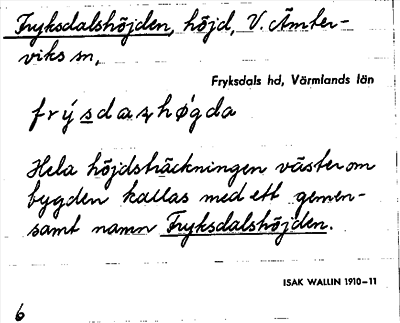 Fryksdalshöjden, höjd, V. Ämter-
viks sn,
Fryksdals hd, Värmlands län
Hela höjdsträckningen väster om
bygden kallas med ett gemen-
samt namn Fryksdalshöjden.
ISAK WALLIN 1910–11
6